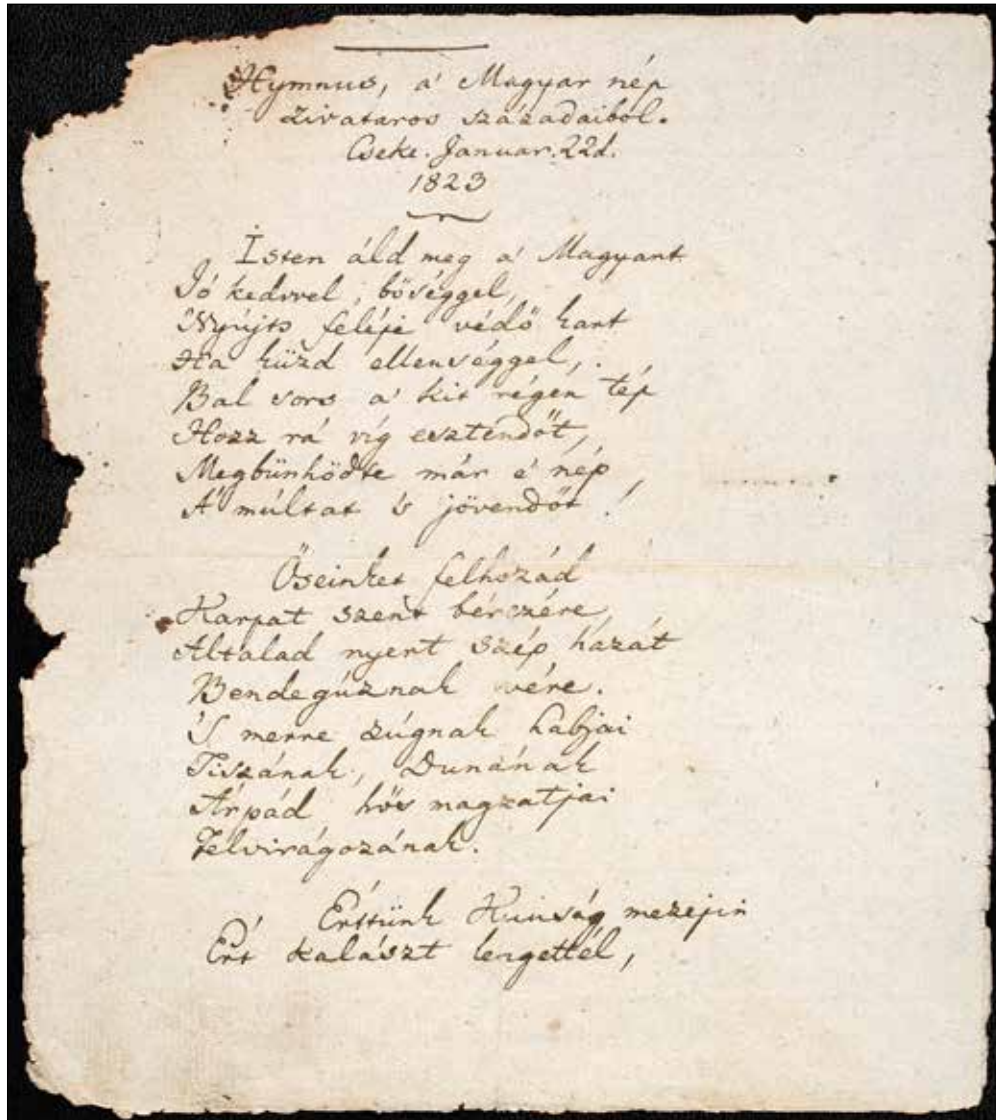 Hymnus, a' Magyar nép
zivataros századaiból.
Cseke. Januar. 22d.
1823
Isten áld meg a' Magyart
Jó kedvvel, bőséggel,
Nyújts feléje védő kart
Ha küzd ellenséggel,
Bal sors a' kit régen tép
Hozz rá víg esztendőt,
Megbűnhődte már e' nép
A' múltat 's jövendőt!
Őseinket felhozád
Kárpat szent bérczére
Általad nyert szép hazát
Bendegúznak vére.
'S merre zúgnak habjai
Tiszának, Dunának
Árpád hős magzatjai
Felvirágozának.
Érttünk Kunság mezejin
Ért kalászt lengettél,